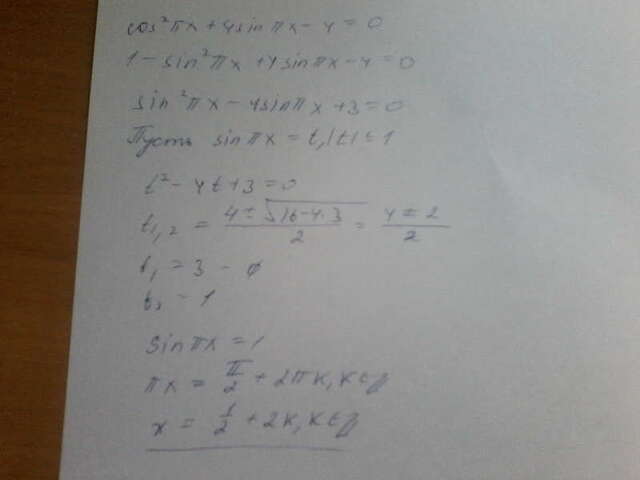 cos²πx + 4sinπx - 4 = 0
1 - sin²πx + 4sinπx - 4 = 0
sin²πx - 4sinπx + 3 = 0
Пусть sinπx = t, |t| ≤ 1
t² - 4t + 3 = 0
t₁,₂ = (4 ± √(16 - 4·3))/2 = (4 ± 2)/2
t₁ = 3 - ∅
t₂ = 1
sinπx = 1
πx = π/2 + 2πk, k ∈ Z
x = 1/2 + 2k, k ∈ Z